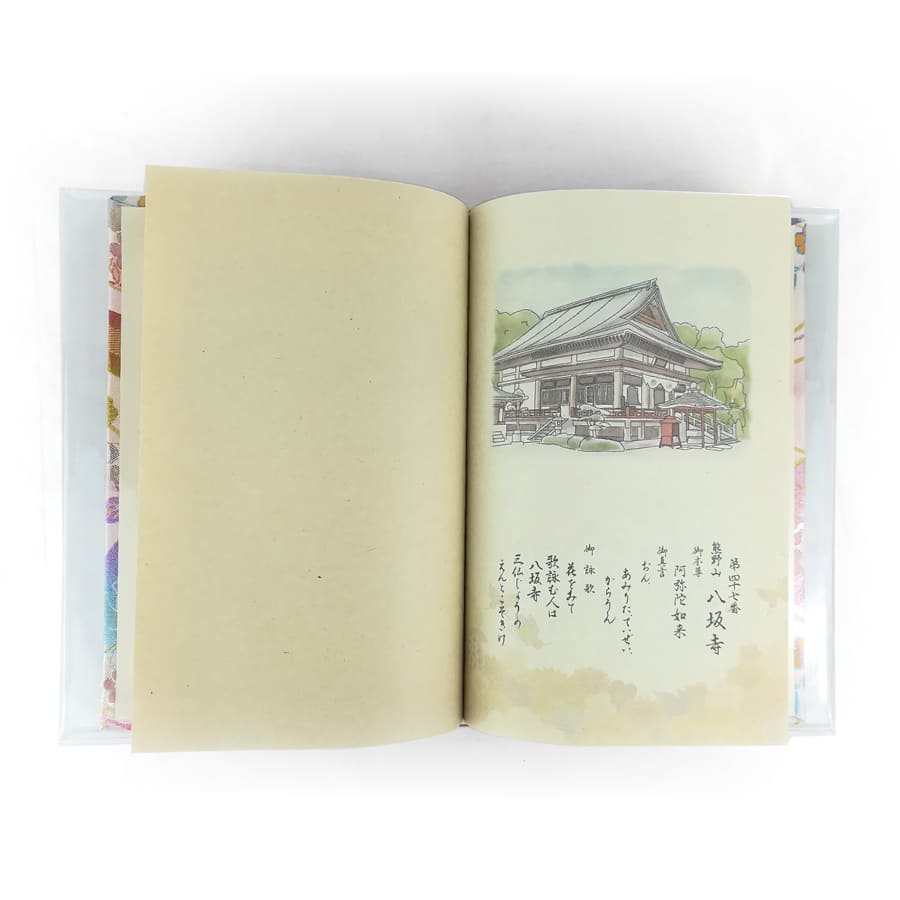 第四十七番
熊野山 八坂寺
御本尊
阿弥陀如来
御真言
おん、
あみりた、ていぜい、
からうん
御詠歌
花をみて
歌詠む人は
八坂寺
三仏じょうの
えんとこそきけ